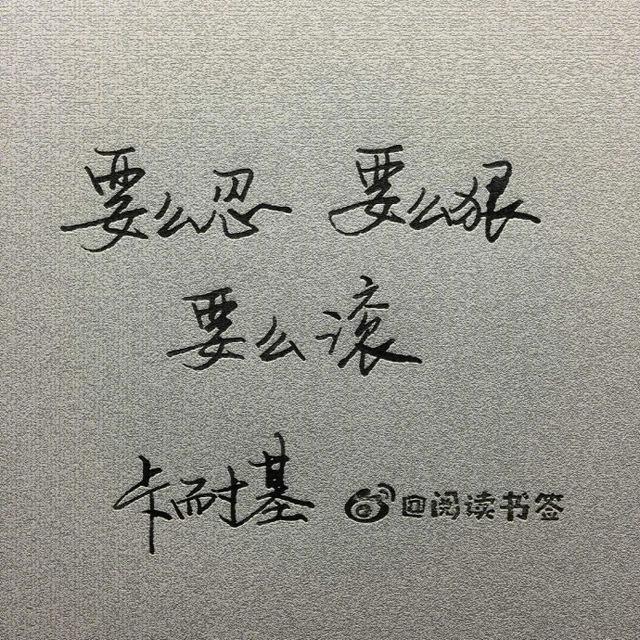 要么忍 要么狠
要么滚
卡耐基 @阅读书签